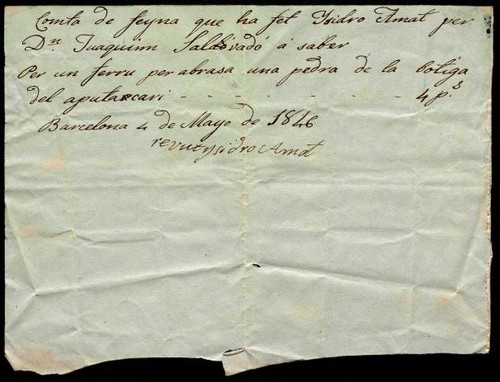 Comta de feyna que ha fet Ysidro Amat per
Dn. Juaquim Saldovadó á saber
Per un ferru per abrasa una pedra de la botiga
del aputacari - - - - - - - - 4 p.s
Barcelona 4 de Mayo de 1846
revut Ysidro Amat